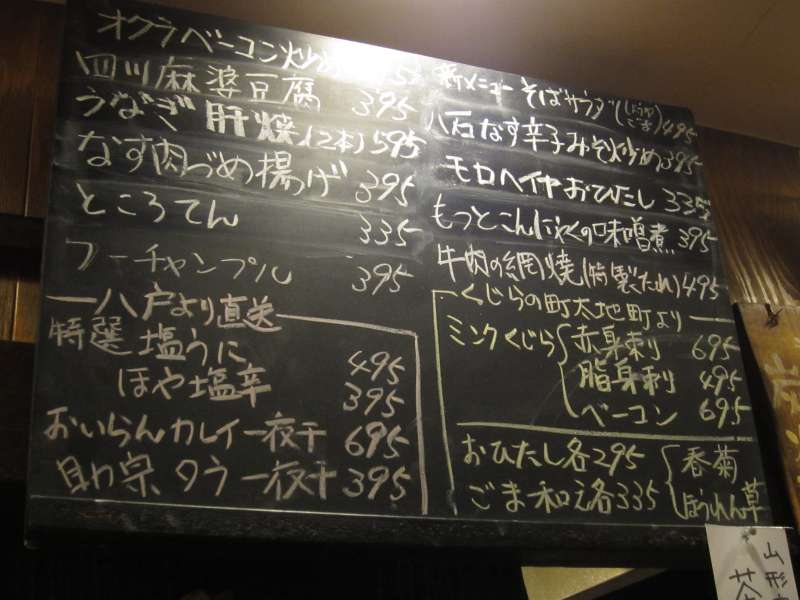 オクラベーコン炒め
四川麻婆豆腐 395
うなぎ肝焼(2本) 595
なす肉づめ揚げ 395
ところてん 335
フーチャンプル 395
八戸より直送
特選塩うに 495
ほや塩辛 395
おいらんカレイ一夜干 695
助宗タラ一夜干 395
新メニューそばサラダ(しょうゆ ごま) 495
八石なす辛子みそ炒め 395
モロヘイヤおひたし 335
もつとこんにゃくの味噌煮 395
牛肉の網焼(特製たれ) 495
くじらの町太地町より
ミンクくじら
赤身刺り 695
脂身刺 495
ベーコン 695
おひたし各295
ごま和え各335
春菊
ほうれん草
山形